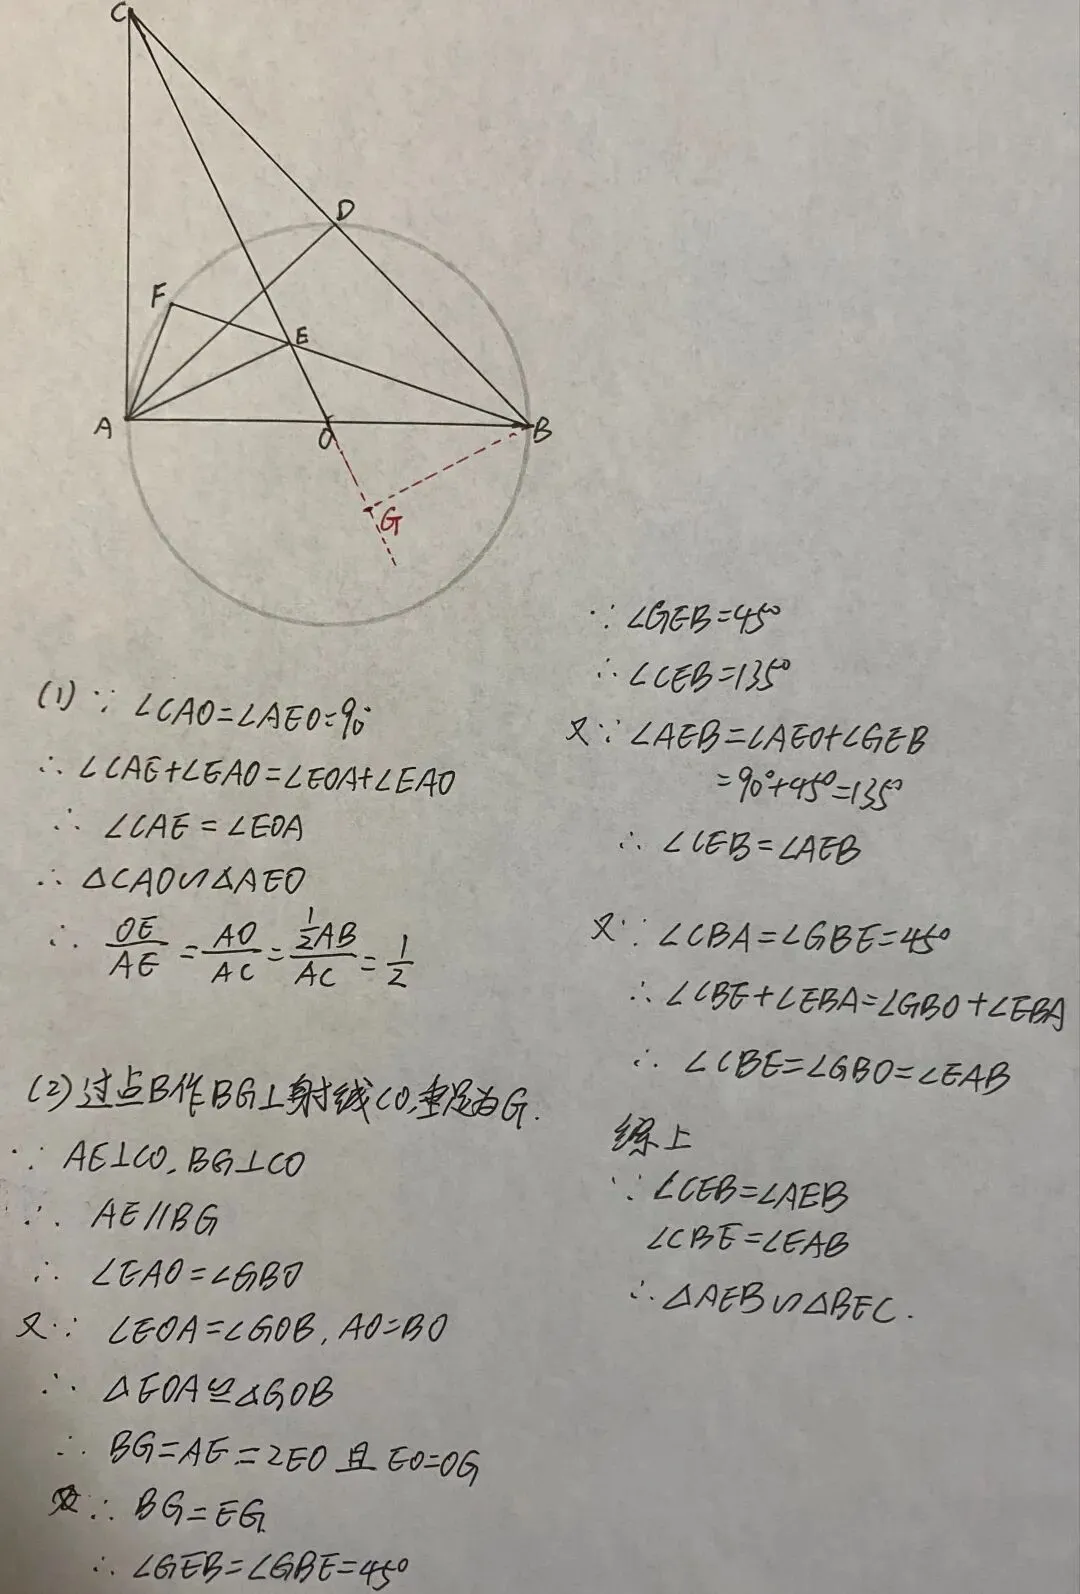 C
D
F
E
A
O
B
G
(1) ∵ ∠CAO=∠AEO=90°
∴ ∠CAE+∠EAO=∠EOA+∠EAO
∴ ∠CAE=∠EOA
∴ △CAO∽△AEO
∴ OE/AE = AO/AC = ½AB/AC = 1/2
(2)过点B作BG⊥射线CO,垂足为G.
∵ AE⊥CO,BG⊥CO
∴ AE//BG
∴ ∠EAO=∠GBO
又∵ ∠EOA=∠GOB,AO=BO
∴ △EOA≌△GOB
∴ BG=AE=2EO 且 EO=OG
∴ BG=EG
∴ ∠GEB=∠GBE=45°
∵ ∠GEB=45°
∴ ∠CEB=135°
又∵ ∠AEB=∠AEO+∠GEB
=90°+45°=135°
∴ ∠CEB=∠AEB
又∵ ∠CBA=∠GBE=45°
∴ ∠CBE+∠EBA=∠GBO+∠EBA
∴ ∠CBE=∠GBO=∠EAB
综上
∵ ∠CEB=∠AEB
∠CBE=∠EAB
∴ △AEB∽△BEC.